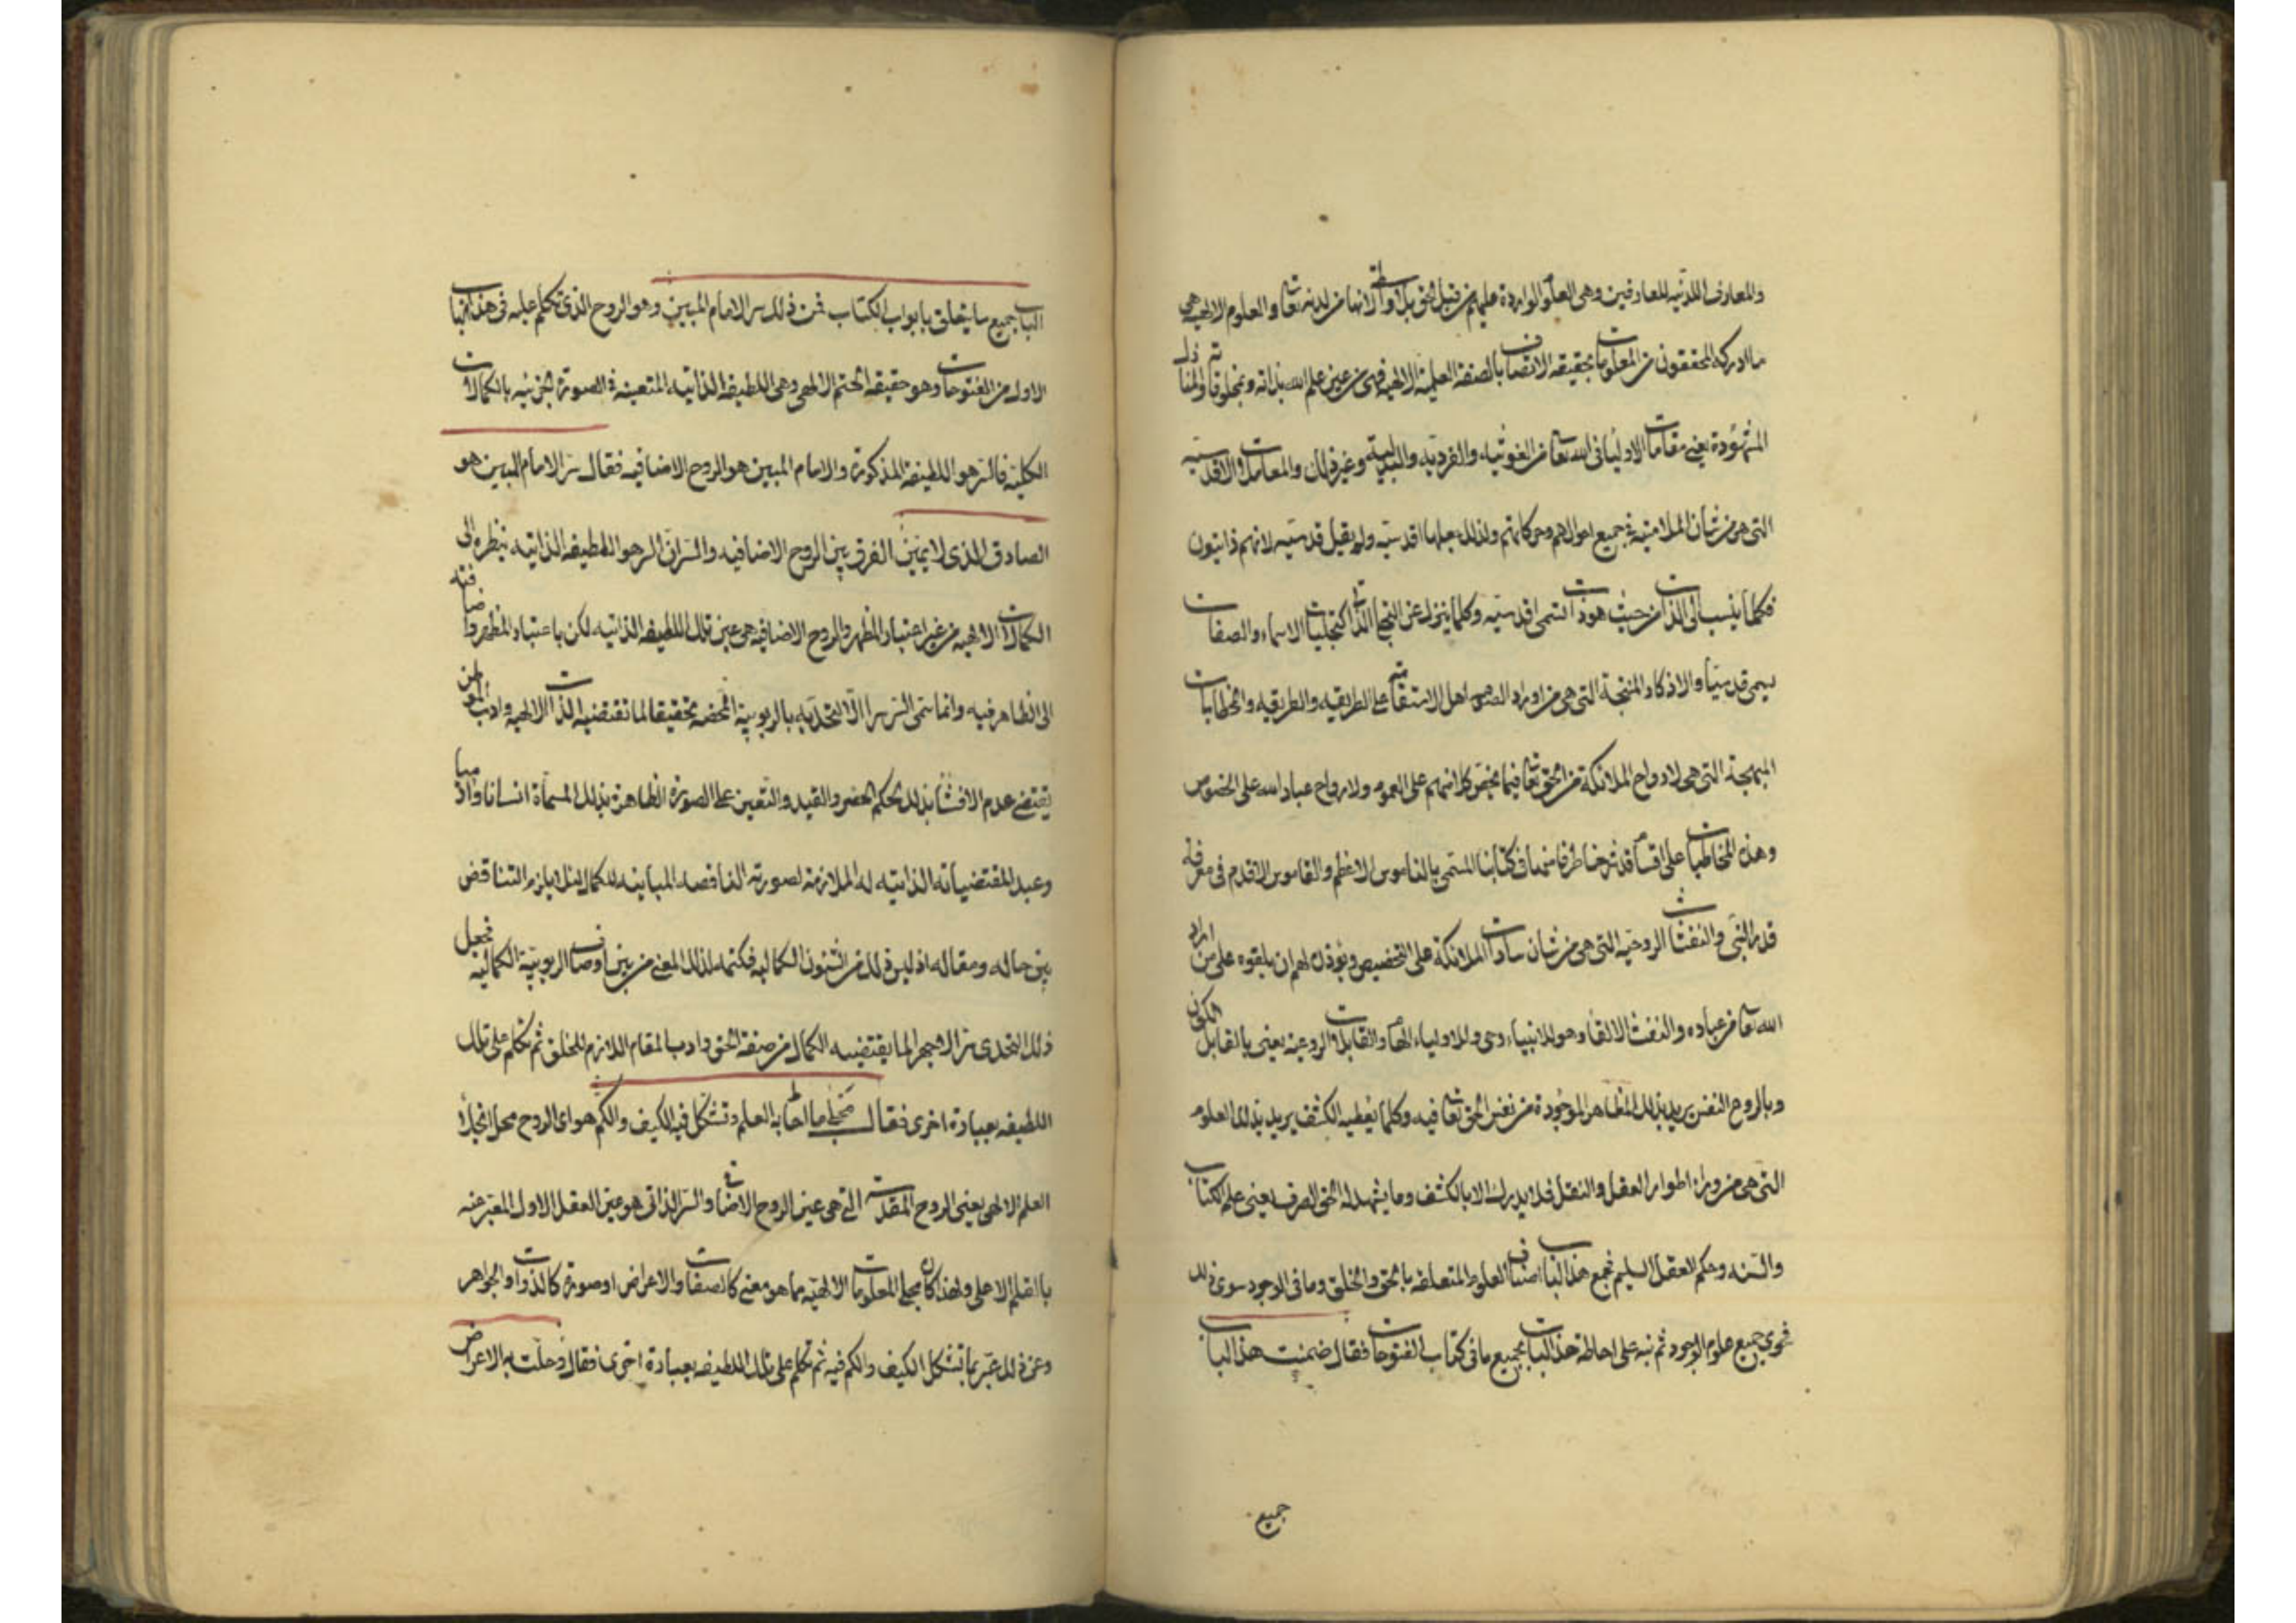 والمعارف اللدنيه للعارفين وهى العلوم الواردة عليهم من قبل الحق بلا واسطة لانها من لدنه تعا والعلوم الالهيه هى
ما ادركه المحققون من المعلومات بحقيقه الاتصاف بالصفة العلمية الالهيه فهى من عين علم الله بذاته وبمخلوقاته والمنازل
المشهودة يعنى مقامات الاوليا فى الله تعا من الغوثيه والفرديه والبدلية وغير ذلك والمعاملات الاقدسيه
التى هى من شان الملامتية فى جميع احوالهم وحركاتهم ولذلك جعلها اقدسيه ولم يقل قدسيه لانهم ذاتيون
فكلما ينسب الى الذات من حيث هو ذات يسمى اقدسيه وكلما ينزل عن التجلى الذاتى كتجليات الاسماء والصفات
يسمى قدسيا والاذكار المنتجة التى هى من اوراد اهل الاستقامة على الطريقه والطريقه والخطابات
المبهجة التى هى لارواح الملائكة من الحق تعا فيما يختص على العموم ولارواح عباد الله على الخصوص
وهذه المخاطبات على اقسام قد شرحنا طرفا منها فى كتابنا المسمى بالناموس الاعظم والقاموس الاقدم فى معرفة
قدر النبى والنفثات الروحيه التى هى من شان سادات الملائكة على التخصيص ويؤذن لهم ان يلقوه على من اراد
الله تعا من عباده والنفث الالقا وهو للانبياء وحى وللاولياء الهام والقابلات الروحيه يعنى بالقابل الكون
وبالروح النفس يريد بذلك المظاهر الموجودة من نفس الحق تعا فيه وكلما يعطيه الكشف يريد بذلك العلوم
التى هى من وراء اطوار العقل والنقل فلا يدرك الا بالكشف وما يشهد له الحق الصرف يعنى علم الكتاب
والسنه وحكم العقل السليم فجمع هذا الباب اصناف العلوم المتعلقه بالحق والخلق وما فى الوجود سوى ذلك
فحوى جميع علوم الوجود ثم نبه على احاطة هذا الباب بجميع ما فى كتاب الفتوحات فقال ضمنت هذا الباب
جميع
الباب جميع ما يتعلق بابواب الكتاب فمن ذلك سر الامام المبين وهو الروح الذى تكلم عليه فى هذا الباب
الاول من الفتوحات وهو حقيقه الختم الالهى وهى اللطيفه الذاتيه المتعينه فى الصورة الجزئيه بالكمالات
الكليه فالسر هو اللطيفة المذكورة والامام المبين هو الروح الاضافيه فقال سر الامام المبين هو
الصادق الذى لا يمين الفرق بين الروح الاضافيه والسر ان السر هو اللطيفه الذاتيه بنظره الى
الكمالات الالهيه من غير اعتبار المظهر والروح الاضافيه هى عين تلك اللطيفه الذاتيه لكن باعتبار المظهر واضافته
الى الظاهر فيه وانما سمى السر سرا لان التحديه بالربوبية المحضه تحقيقا لما تقتضيه الذات الالهيه وادب المواطن
يقتضى عدم الافشا بذلك لحكم الحصر والقيد والتعين على الصورة الظاهرة بذلك المسماة انسانا وادميا
وعبد المقتضياته الذاتيه له الملازمة لصورته الناقصه المباينه للكمال لئلا يلزم التناقض
بين حاله ومقاله اذ ليس ذلك من الشئون الكماليه فكتم لذلك المعنى من بين اوصاف الربوبية الكماليه فجعل
ذلك التحدى سرا لا جهرا لما يقتضيه الكمال من صفة الحق وادب المقام اللازم للخلق ثم تكلم على تلك
اللطيفه بعبارة اخرى فقال محل ما احاط به العلم وتشكل فيه الكيف والكم هو اى الروح محل انجلا
العلم الالهى يعنى الروح المقدسة التى هى عين الروح الاضافى والسر الذاتى هو عين العقل الاول المعبر عنه
بالقلم الاعلى ولهذا كان مجلى المعلومات الالهيه مما هو معنى كالصفات والاعراض او صورة كالذوات والجواهر
وعن ذلك عبر بما تشكل الكيف والكم فيه ثم تكلم على تلك اللطيفه بعبارة اخرى فقال وحلت به الاعراض